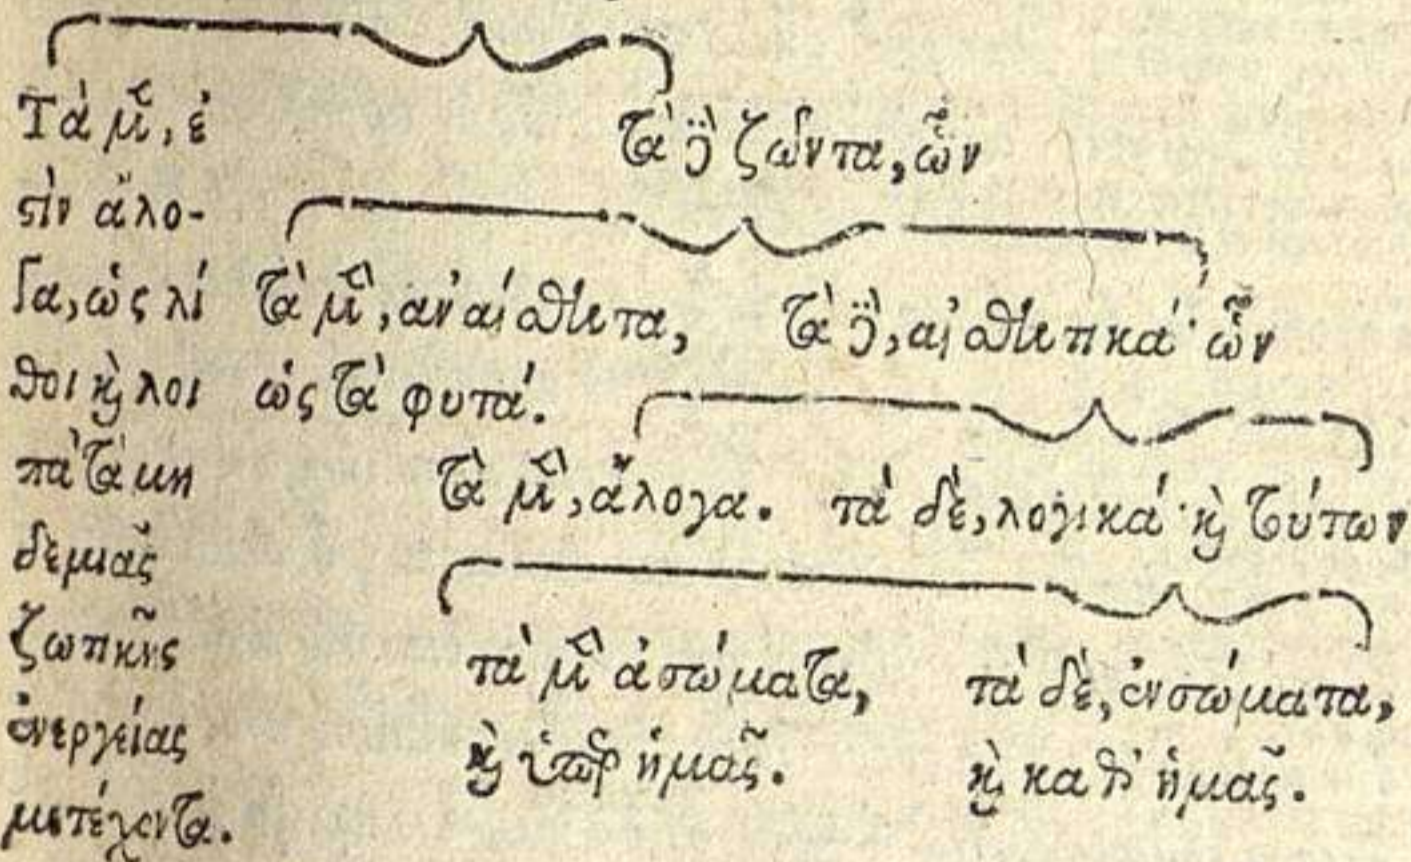 Τὰ μὲν, ἐ
σὶν ἄλο-
γα, ὡς λί
θοι καὶ λοι
πὰ τὰ μη
δεμιᾶς
ζωτικῆς
ἐνεργείας
μετέχοντα.
τὰ δὲ ζῶντα, ὧν
τὰ μὲν, ἀναίσθητα,
ὡς τὰ φυτά.
τὰ δὲ, αἰσθητικά· ὧν
τὰ μὲν, ἄλογα.
τὰ δὲ, λογικά· καὶ τούτων
τὰ μὲν ἀσώματα,
καὶ ὑπὲρ ἡμᾶς.
τὰ δὲ, ἐνσώματα,
καὶ καθ' ἡμᾶς.